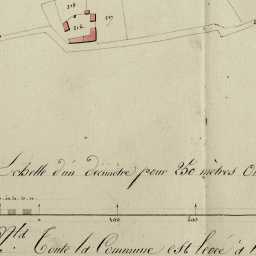 218
217
216
Echelle d'un décimètre pour 250 mètres ou
100
200
Toute la Commune est levée à l